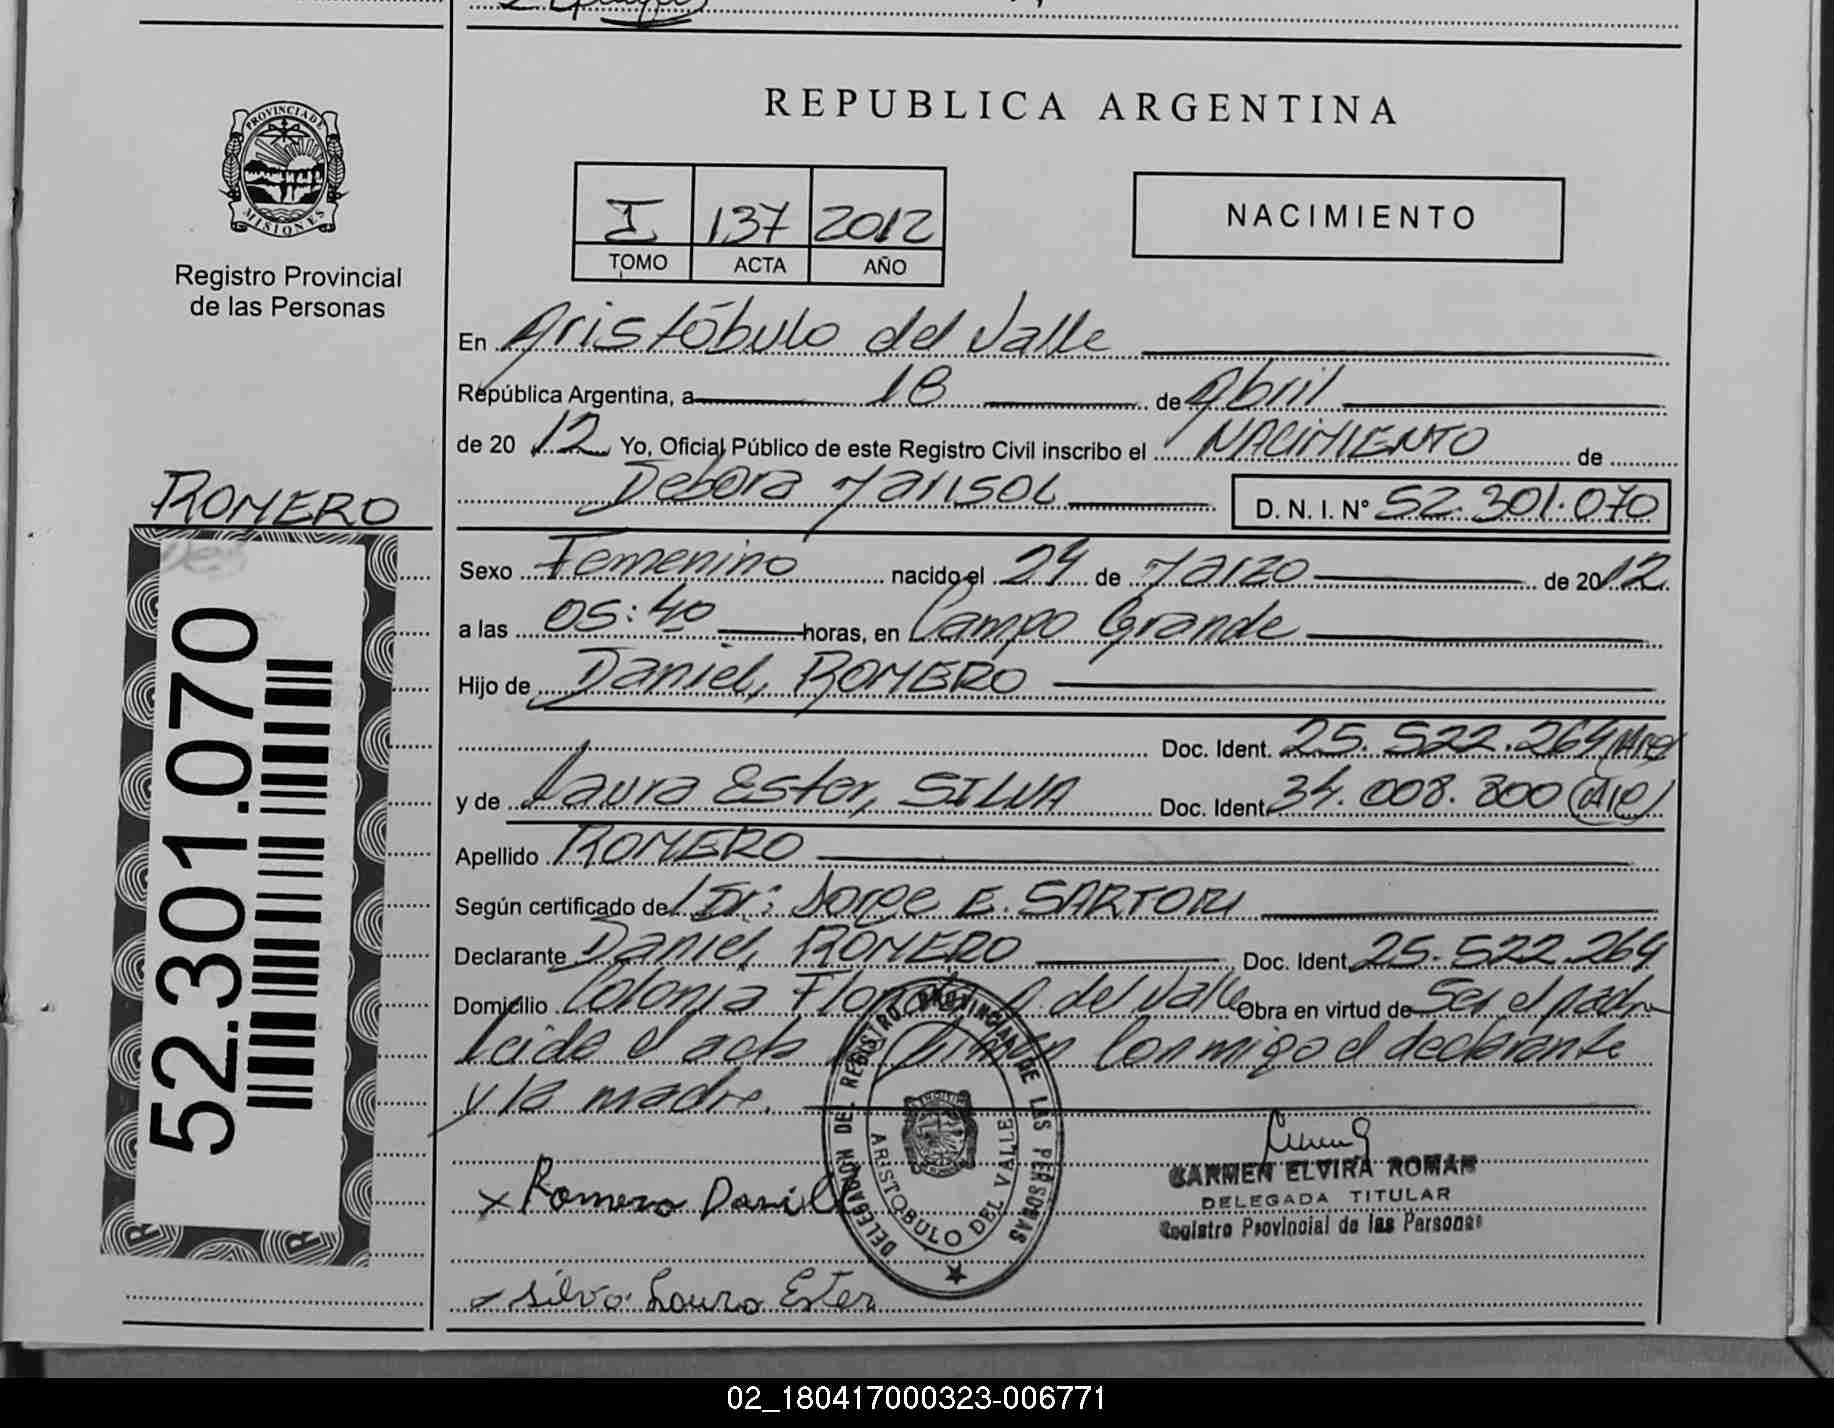 REPUBLICA ARGENTINA
PROVINCIA DE
MISIONES
Registro Provincial
de las Personas
I 137 2012
TOMO ACTA AÑO
NACIMIENTO
En Aristóbulo del Valle
República Argentina, a 18 de Abril
de 2012 Yo, Oficial Público de este Registro Civil inscribo el NACIMIENTO de
Debora Marisol D. N. I. N° 52.301.070
ROMERO
52.301.070
Sexo Femenino nacido el 24 de Marzo de 2012
a las 05:40 horas, en Campo Grande
Hijo de Daniel, ROMERO
Doc. Ident. 25.522.264
y de Laura Ester, SILVA Doc. Ident. 34.008.800
Apellido ROMERO
Según certificado de Dr: Jorge E. SARTORI
Declarante Daniel, ROMERO Doc. Ident. 25.522.264
Domicilio Colonia A. del Valle Obra en virtud de Ser el padre
Leida el acta conmigo el declarante
y la madre.
DELEGACION DEL REGISTRO PROVINCIAL DE LAS PERSONAS
ARISTOBULO DEL VALLE
CARMEN ELVIRA ROMAN
DELEGADA TITULAR
Registro Provincial de las Personas
x Romero Daniel
Silva Laura Ester
02_180417000323-006771